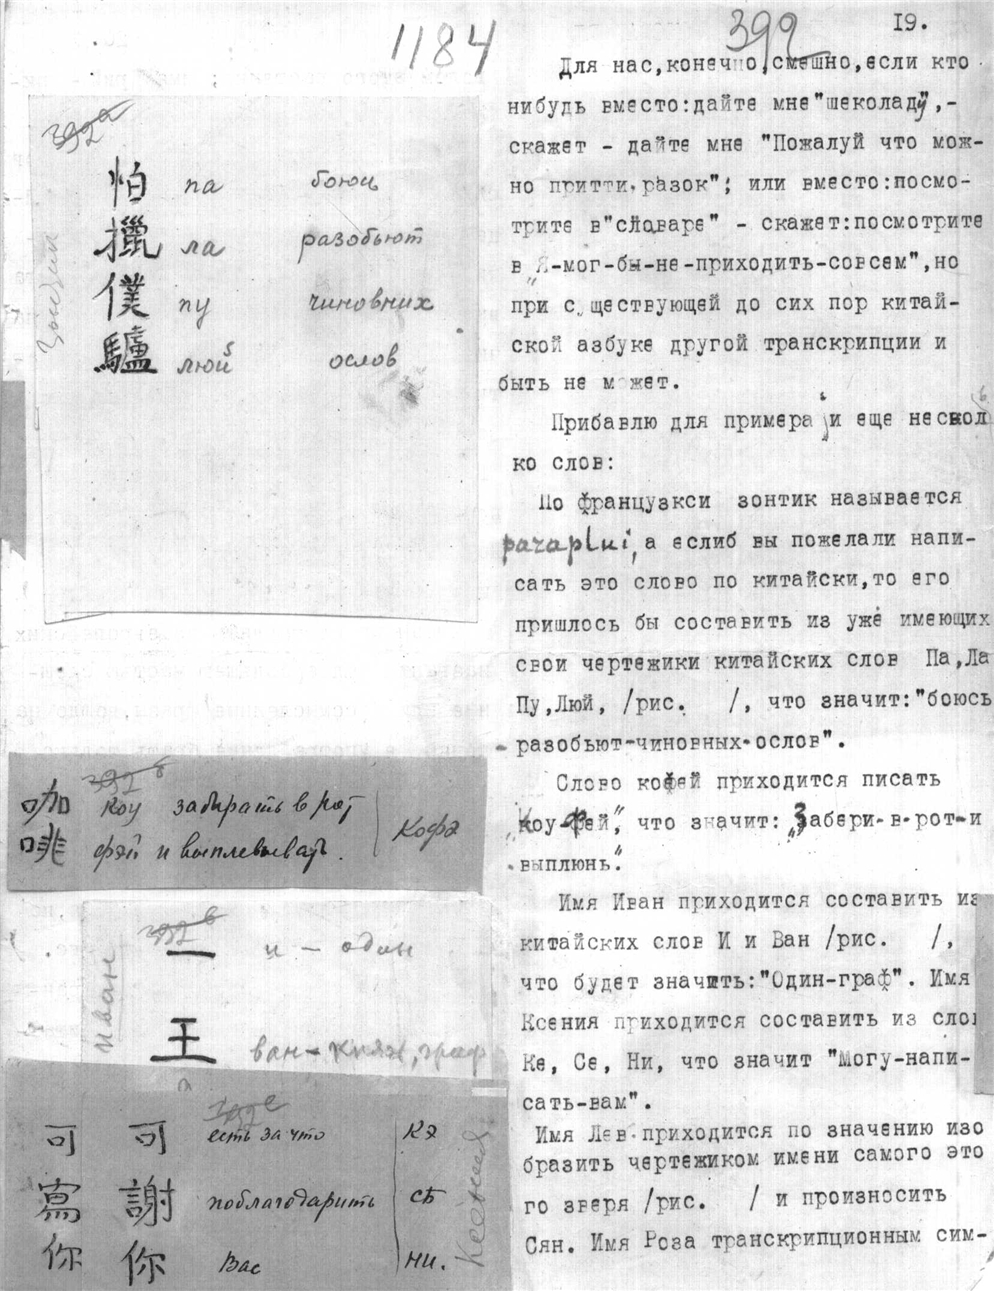 1184
392
19.
392а
怕 па боюсь
擸 ла разобьют
僕 пу чиновных
驢 люй ослов
392б
咖 коу забирать в рот
啡 фэй и выплевывать.
Кофэ
392в
一 и - один
王 ван - князь, граф
Иван
392г
可 可 есть за что кэ
寫 謝 поблагодарить сѣ
你 你 Вас ни.
Ксения
Для нас,конечно,смешно,если кто
нибудь вместо:дайте мне"шеколаду",-
скажет - дайте мне "Пожалуй что мож-
но притти разок"; или вместо:посмо-
трите в"словаре" - скажет:посмотрите
в "Я-мог-бы-не-приходить-совсем",но
при с ществующей до сих пор китай-
ской азбуке другой транскрипции и
быть не может.
Прибавлю для примера и еще несколь
ко слов:
По французкси зонтик называется
paraplui, а еслиб вы пожелали напи-
сать это слово по китайски,то его
пришлось бы составить из уже имеющих
свои чертежики китайских слов Па,Ла
Пу,Люй, /рис. /, что значит:"боюсь
-разобьют-чиновных-ослов".
Слово кофей приходится писать
"Коу-фей", что значит: "Забери-в-рот-и
-выплюнь".
Имя Иван приходится составить из
китайских слов И и Ван /рис. /,
что будет значить:"Один-граф". Имя
Ксения приходится составить из слов
Ке, Се, Ни, что значит "Могу-напи-
сать-вам".
Имя Лев приходится по значению изо
бразить чертежиком имени самого это
го зверя /рис. / и произносить
Сян. Имя Роза транскрипционным сим-